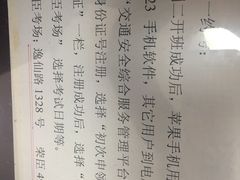 一开班成功后，苹果手机用
23 手机软件，其它用户到电
“交通安全综合服务管理平台
身份证号注册，选择“初次申领
证”一栏，注册成功后，选择“
臣考场”选择考试日期等。
臣考场：逸仙路 1328 号 荣臣 4